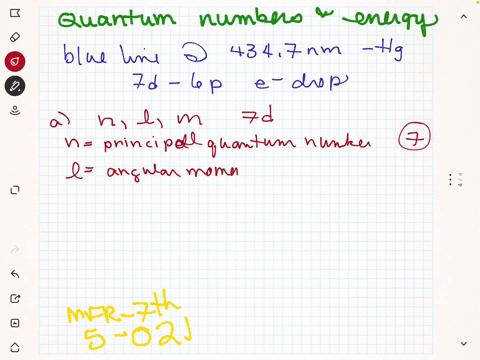 Quantum numbers & energy
blue line @ 434.7nm - Hg
7d - 6p e- drop
a) n, l, m 7d
n = principal quantum number 7
l = angular mome
MFR - 7th
5-02
4/4